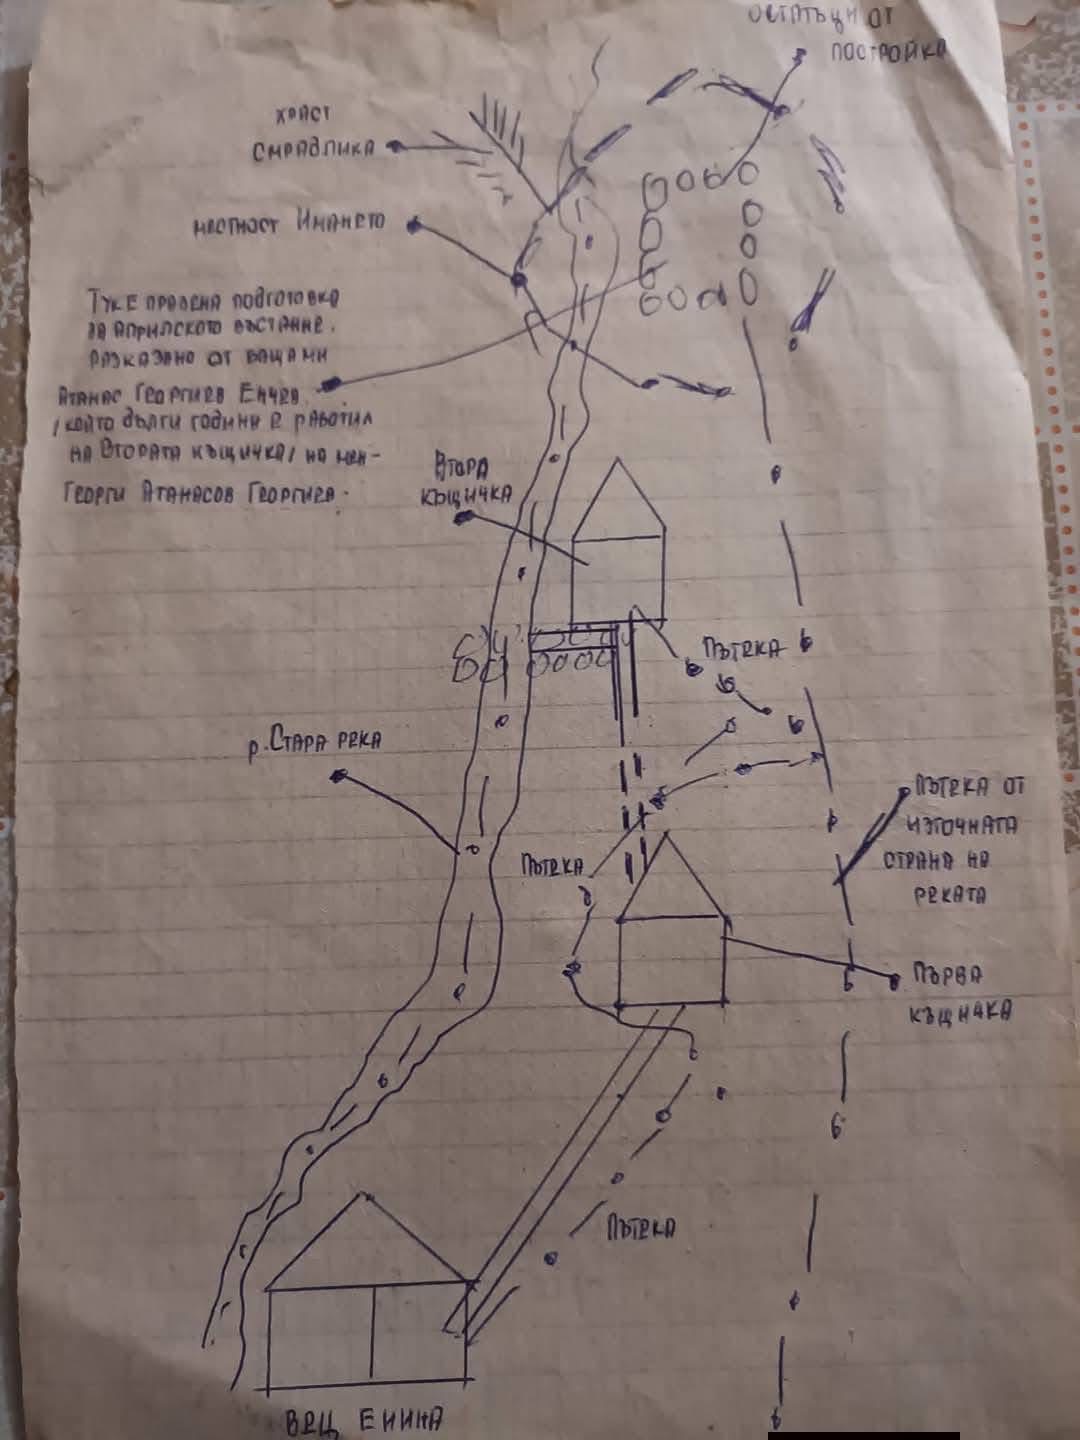 ОСТАТЪЦИ ОТ
ПОСТРОЙКА
ХРАСТ
СМРАДЛИКА
МЕСТНОСТ ИМАНЕТО
ТУКЕ ПРАВЕНА ПОДГОТОВКА
ЗА АПРИЛСКОТО ВЪСТАНИЕ.
РАЗКАЗАНО ОТ БАЩАМИ
АТАНАС ГЕОРГИЕВ ЕНЧЕВ
/КОЙТО ДЪЛГИ ГОДИНИ Е РАБОТИЛ
НА ВТОРАТА КЪЩИЧКА/ НА МЕН-
ГЕОРГИ АТАНАСОВ ГЕОРГИЕВ.
ВТОРА
КЪЩИЧКА
ПЪТЕКА
р. СТАРА РЕКА
ПЪТЕКА ОТ
ИЗТОЧНАТА
СТРАНА НА
РЕКАТА
ПЪТЕКА
ПЪРВА
ПЪТЕКА
ВЕЦ ЕНИНА